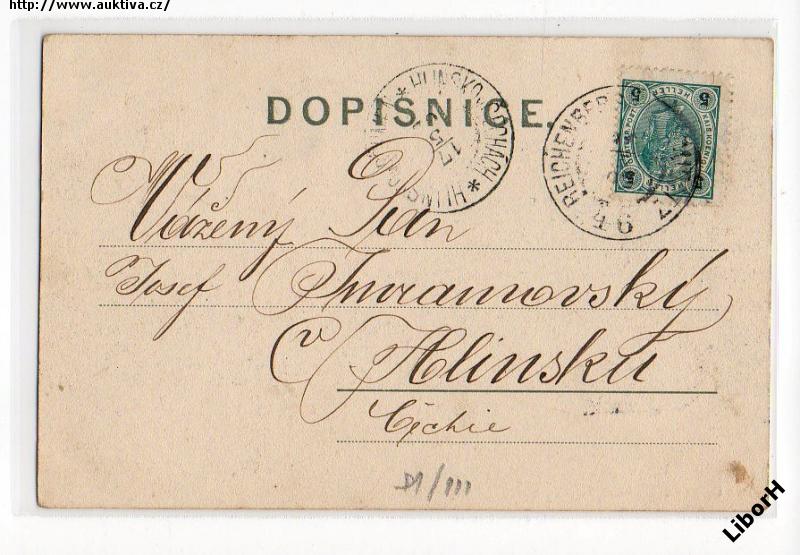 http://www.auktiva.cz/
DOPISNICE.
HLINSKO
HLINSKO
17
REICHENBERG
5 HELLER 5
Vážený Pan
Josef
v Hlinsku
Čechie
LiborH